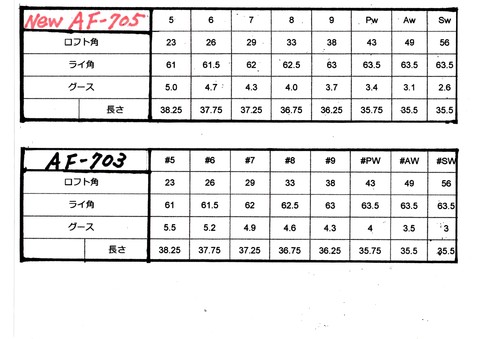 New AF-705 5 6 7 8 9 Pw Aw Sw
ロフト角 23 26 29 33 38 43 49 56
ライ角 61 61.5 62 62.5 63 63.5 63.5 63.5
グース 5.0 4.7 4.3 4.0 3.7 3.4 3.1 2.6
長さ 38.25 37.75 37.25 36.75 36.25 35.75 35.5 35.5
AF-703 #5 #6 #7 #8 #9 #PW #AW #SW
ロフト角 23 26 29 33 38 43 49 56
ライ角 61 61.5 62 62.5 63 63.5 63.5 63.5
グース 5.5 5.2 4.9 4.6 4.3 4 3.5 3
長さ 38.25 37.75 37.25 36.75 36.25 35.75 35.5 35.5